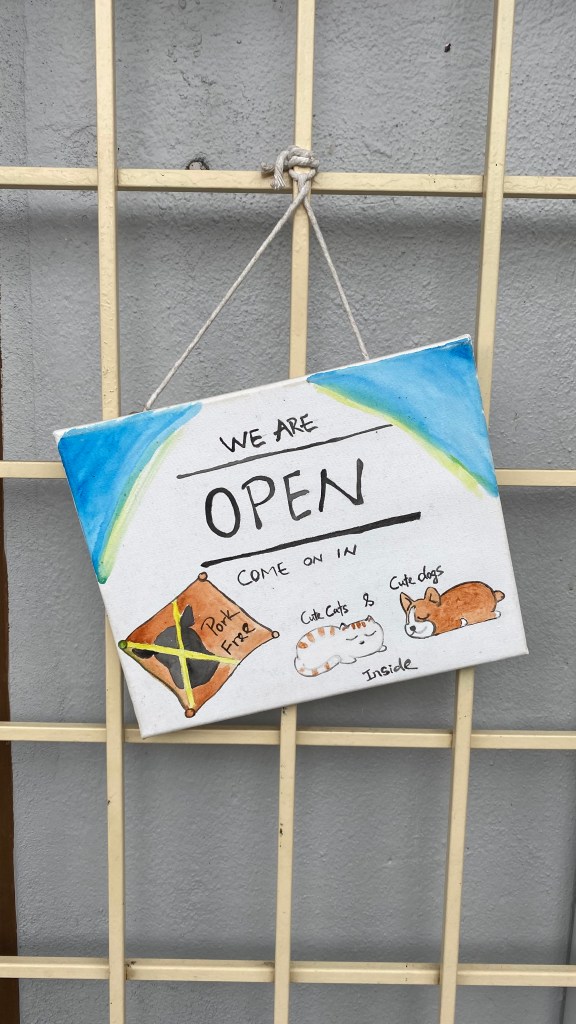 WE ARE
OPEN
COME ON IN
Pork
Free
Cute Cats & Cute dogs
Inside